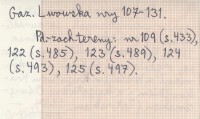 Gaz. Lwowska nry 107-131.
Pd.-zach. tereny: nr 109 (s. 433),
122 (s. 485), 123 (s. 489), 124
(s. 493), 125 (s. 497).